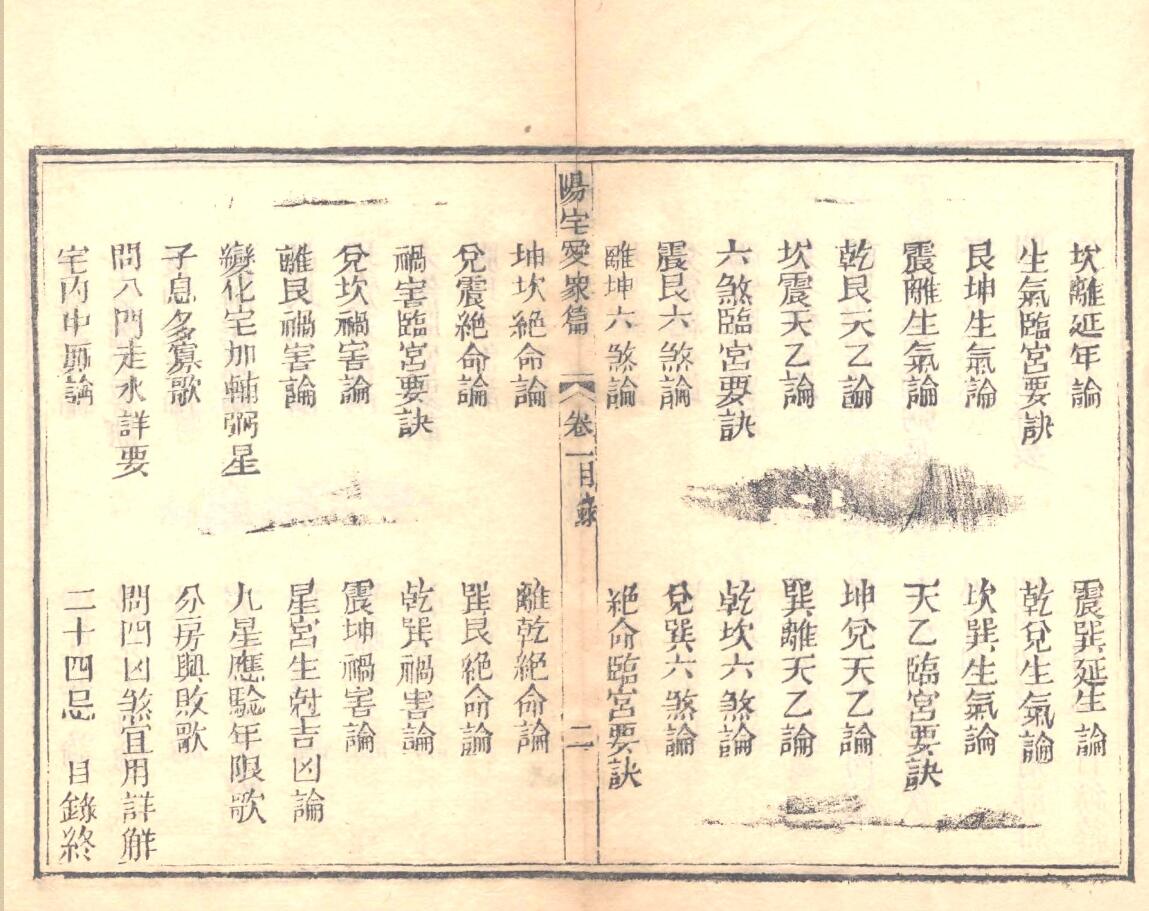 坎離延年論
震巽延生論
生氣臨宮要訣
乾兌生氣論
艮坤生氣論
坎巽生氣論
震離生氣論
天乙臨宮要訣
乾艮天乙論
坤兌天乙論
坎震天乙論
巽離天乙論
六煞臨宮要訣
乾坎六煞論
震艮六煞論
兌巽六煞論
離坤六煞論
絕命臨宮要訣
陽宅愛衆篇
卷一目錄
二
坤坎絕命論
離乾絕命論
兌震絕命論
巽艮絕命論
禍害臨宮要訣
乾巽禍害論
兌坎禍害論
震坤禍害論
離艮禍害論
星宮生尅吉凶論
變化宅加輔弼星
九星應驗年限歌
子息多寡歌
分房興敗歌
問八門走水詳要
問四凶煞宜用詳解
宅內中論
二十四忌
目錄終